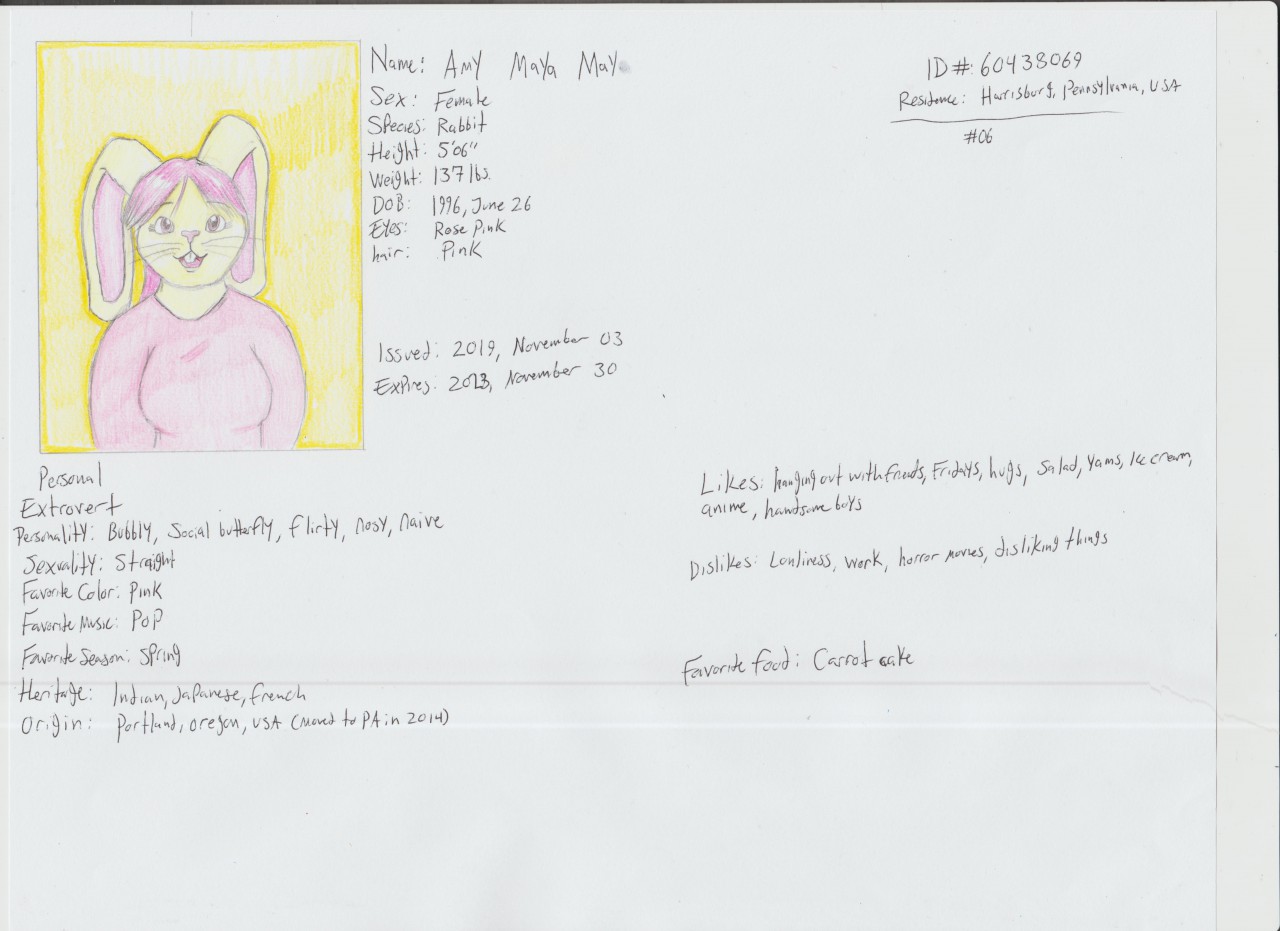 Name: Amy Maya May
Sex: Female
Species: Rabbit
Height: 5'06"
Weight: 137 lbs.
DOB: 1996, June 26
Eyes: Rose Pink
hair: Pink
Issued: 2019, November 03
Expires: 2023, November 30
ID#: 60438069
Residence: Harrisburg, Pennsylvania, USA
#06
Personal
Extrovert
Personality: Bubbly, Social butterfly, flirty, nosy, naive
Sexuality: Straight
Favorite Color: Pink
Favorite Music: Pop
Favorite Season: Spring
Heritage: Indian, Japanese, french
Origin: Portland, oregon, USA (moved to PA in 2014)
Likes: hanging out with friends, Fridays, hugs, Salad, Yams, Ice cream,
anime, handsome boys
Dislikes: Lonliness, work, horror movies, disliking things
Favorite food: Carrot cake